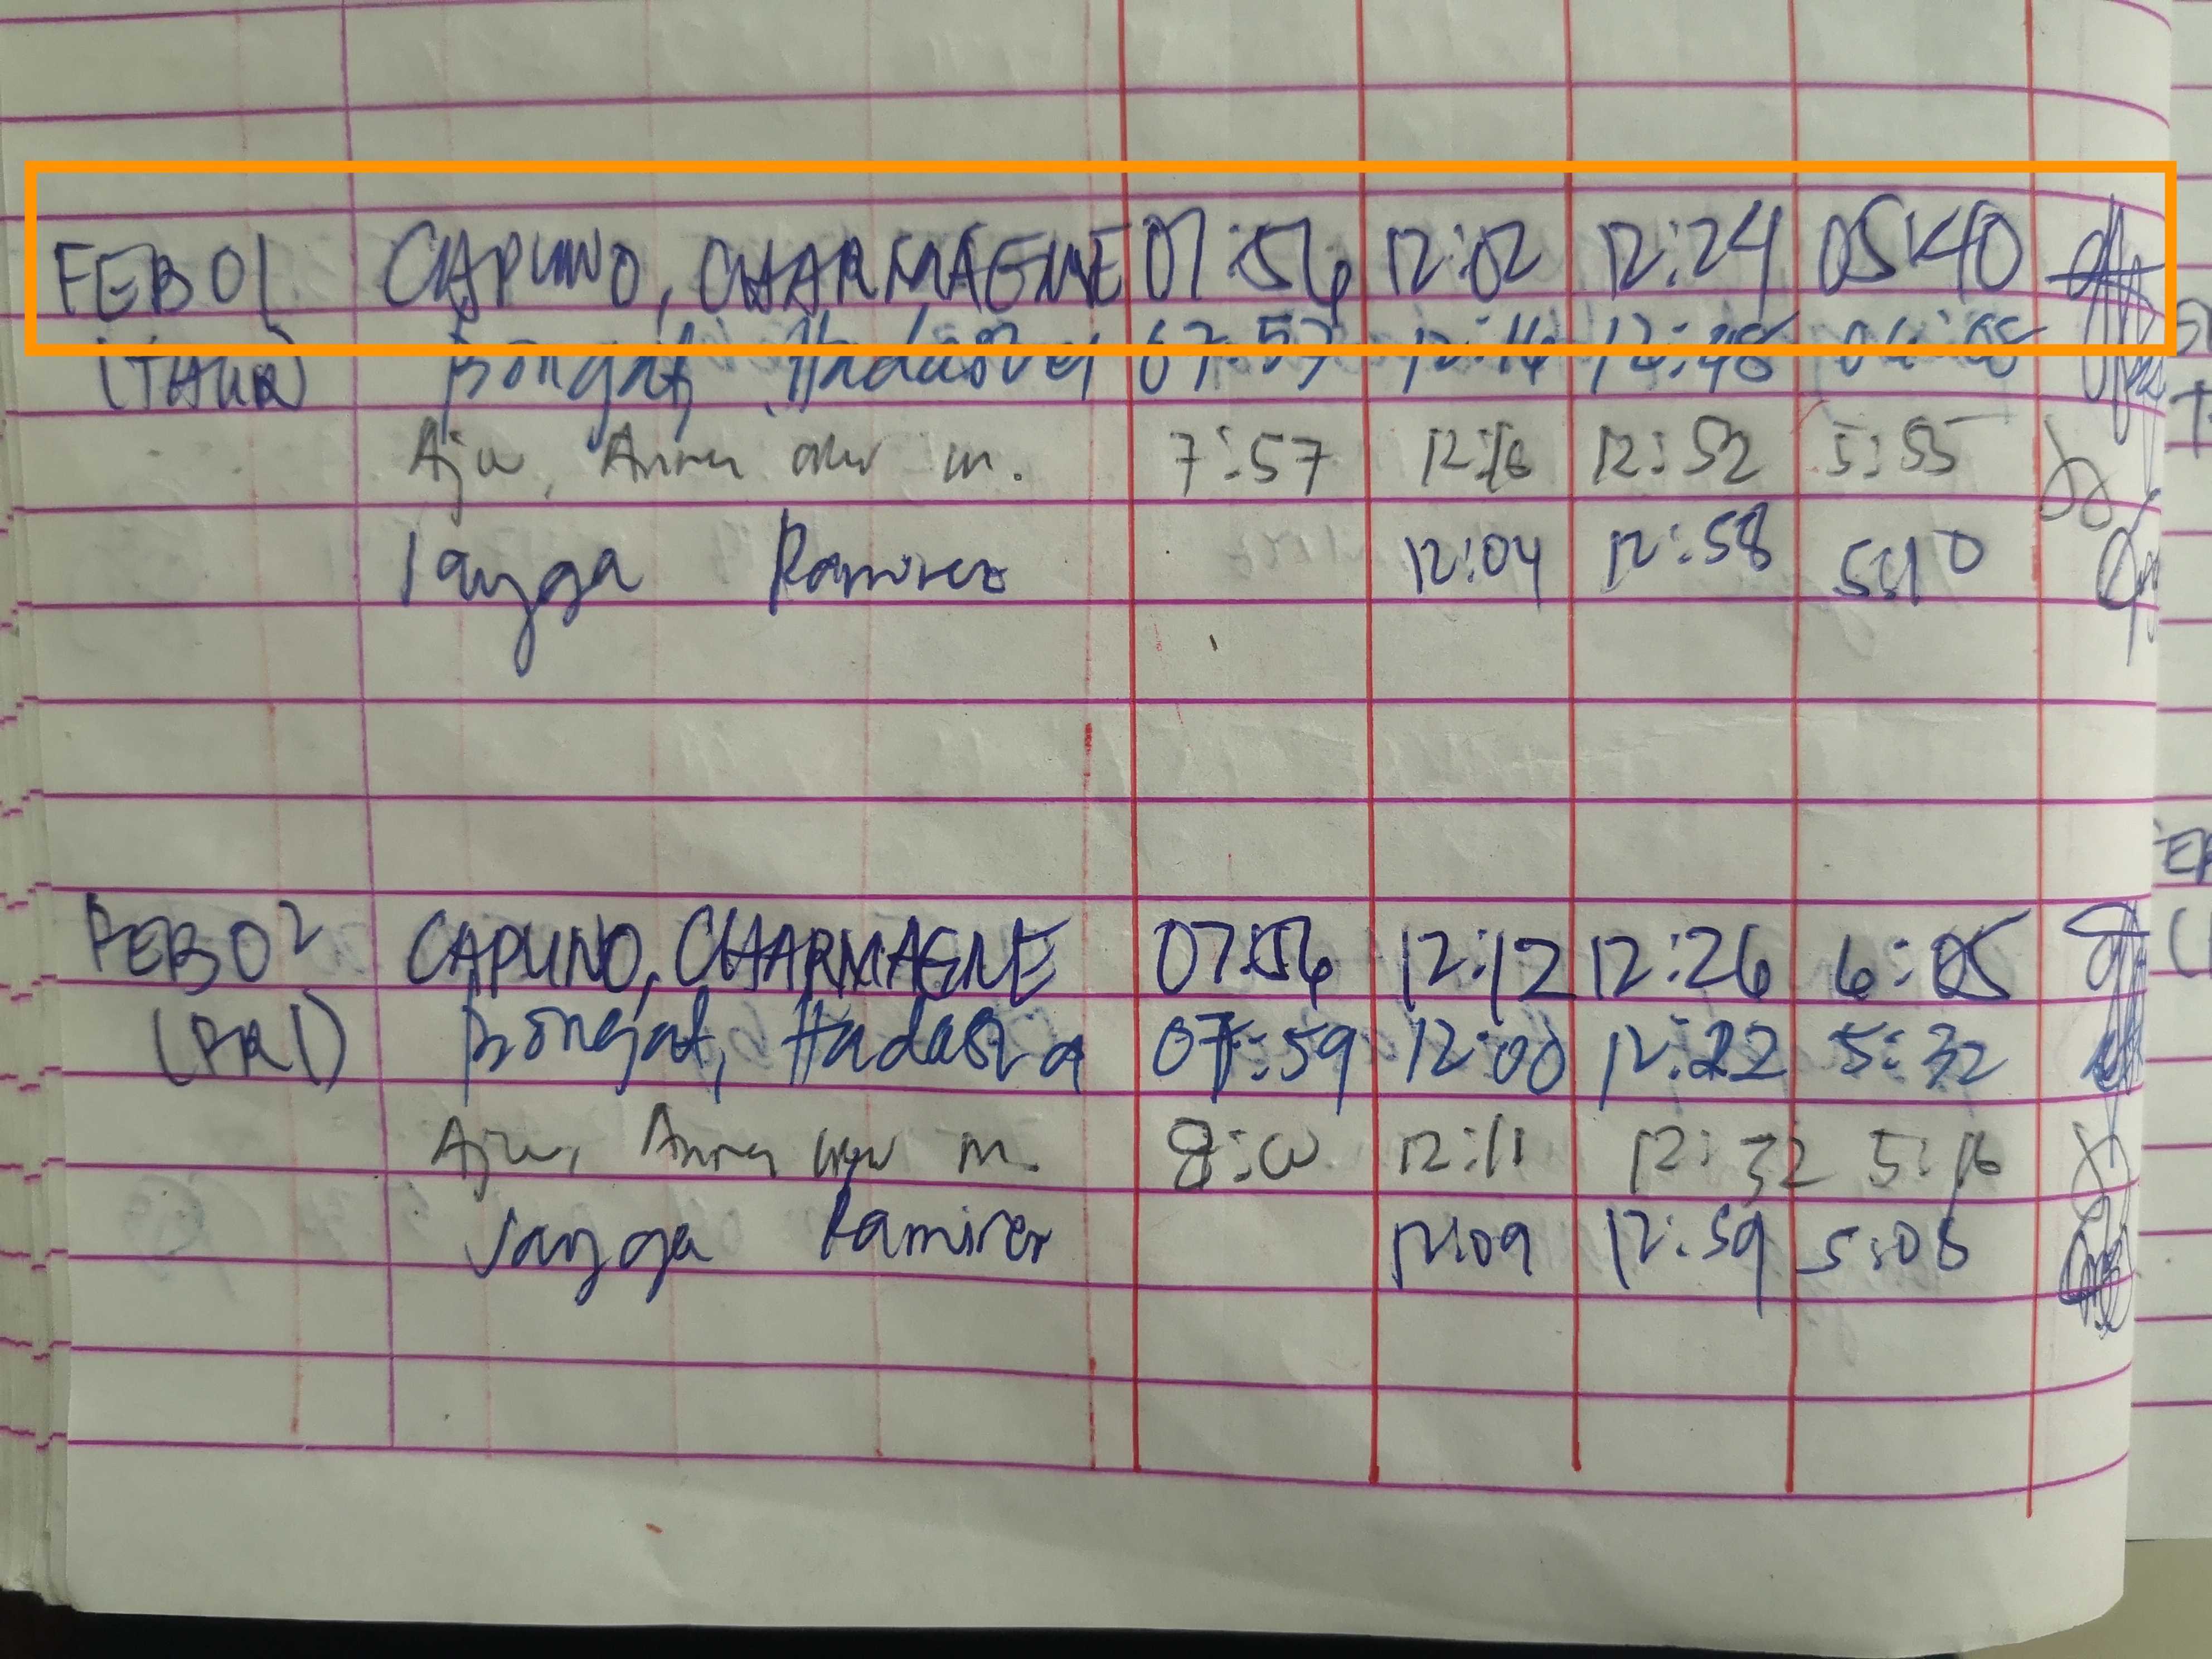 FEB 01 CAPUNO, CHARMAGNE 07:56 12:02 12:24 05:40
(THUR) Bongat, Hadassa 07:57 12:14 12:48 06:05
Aju, Anna m. 7:57 12:16 12:52 5:55
Jaysa Ramirez 12:04 12:58 5:10
FEB 02 CAPUNO, CHARMAGNE 07:56 12:12 12:26 6:05
(FRI) Bongat, Hadassa 07:59 12:00 12:22 5:32
Aju, Anna m. 8:00 12:11 12:32 5:16
Ramirez 12:09 12:59 5:08